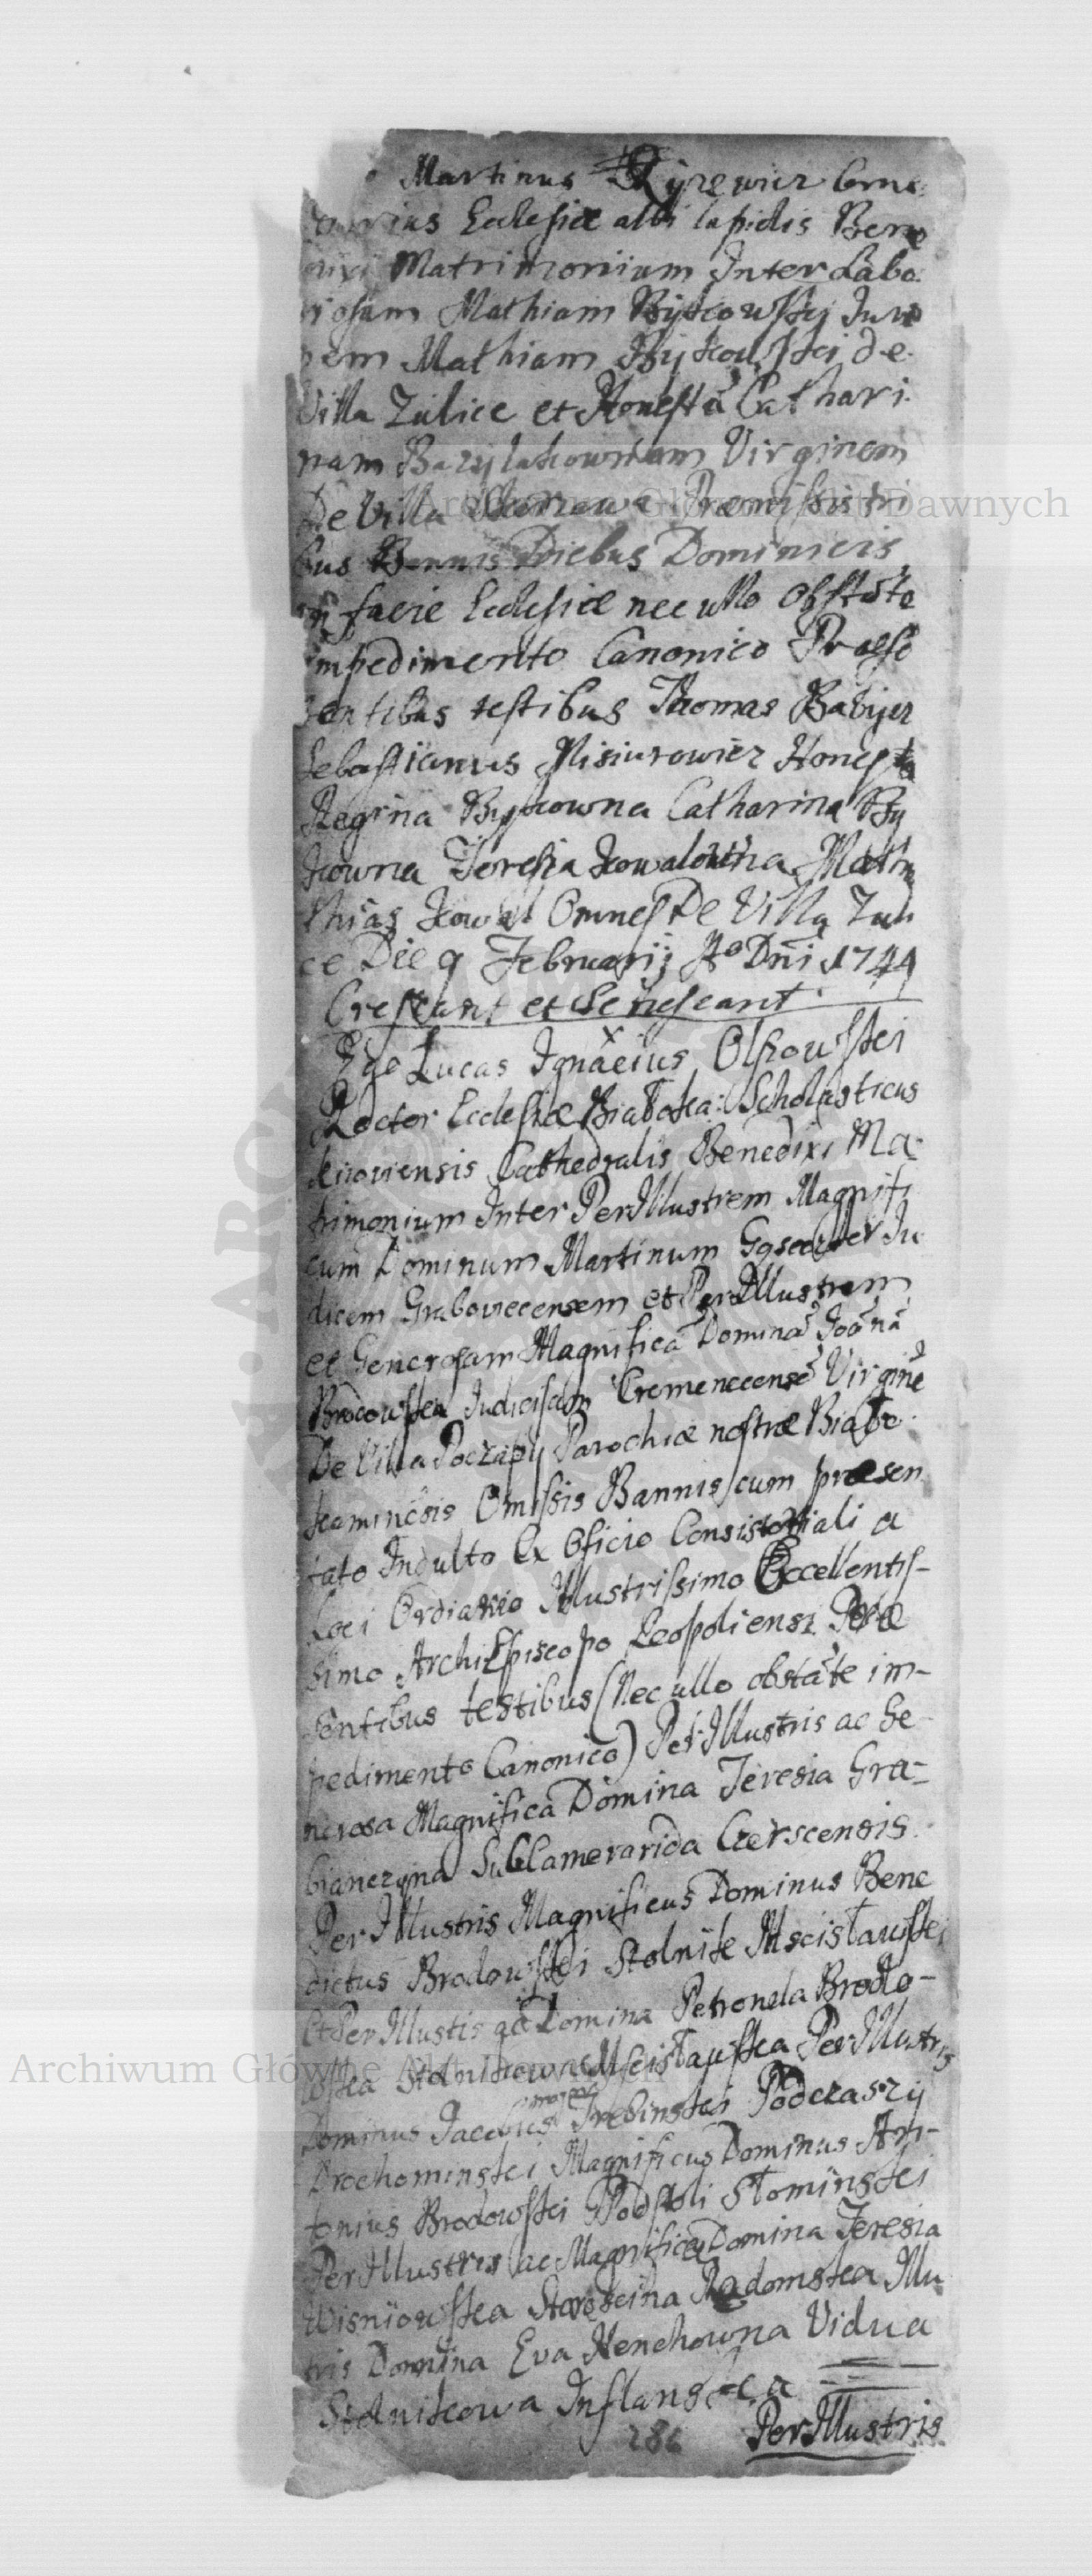 Martinus Ryzewicz Com͞e:
darius Ecclesiæ albi lapidis Bene
dixi Matrimonium Inter Labo:
riosum Mathiam Bytkowskij Juve
nem Mathiam Bytkowskei de
Villa Zulice et Honestā Cathari:
nam Bazylakownam Virginem
De Villa Præmissis tri
bus Bannis Diebus Dominicis
in facie Ecclesiæ nec ullo Obstāte
impedimento Canonico Præse
sentibus testibus Thomas Babijcz
Sebastianus Misiurowicz Honesta
Regina Bytkowna Catharina By
tkowna Teresia Kowalowna Math
thias Kowal Omnes De Villa Zuli
ce Die 9 Februarij Ao Dn̄i 1744
Crescant et Senescant
Ego Lucas Ignacius Olszowskei
Rector Ecclesiæ Białoka: Scholasticus
kijoviensis Cathedralis Benedixi Ma:
trimonium Inter Per Illustrem Magnifi
cum Dominum Martinum Ju
dicem Grabovecensem et Per Illustrem
et Generosam Magnificā Dominā Joānā
Judicissam Cremenecensē Virginē
De Villa Poczapy Parochiæ nostræ Biało:
kaminēsis Omissis Bannis cum præsen
tato Indulto Ex Oficio Consistoriali a
Loci Ordiario Illustrissimo Excellentis-
simo Archi Episcopo Leopoliensi Præ
sentibus testibus (Nec ullo obstāte im-
pedimento Canonico) Per Illustris ac Ge-
nerosa Magnifica Domina Teresia Gra-
bianczyna SubCamerarida Czerscensis
Per Illustris Magnificus Dominus Bene
dictus Brodowskei Stolnik Mscisławskei
Et Per Illustis ac Domina Petronela Brodo-
wska Stolnikowa Mscisławska Per Illustris
Dominus Jacobus Trebinskei Podczaszy
Drochominskei Magnificus Dominus An-
tonius Brodowskei Podstoli Słominskei
Per Illustris ac Magnifica Domina Teresia
Wisniowska Staroscina Radomska Illu
tris Domina Eva Henchowna Vidua
Stolnikowa Inflanska
286 Per Illustris
Archiwum Główne Akt Dawnych
Archiwum Główne Akt Dawnych